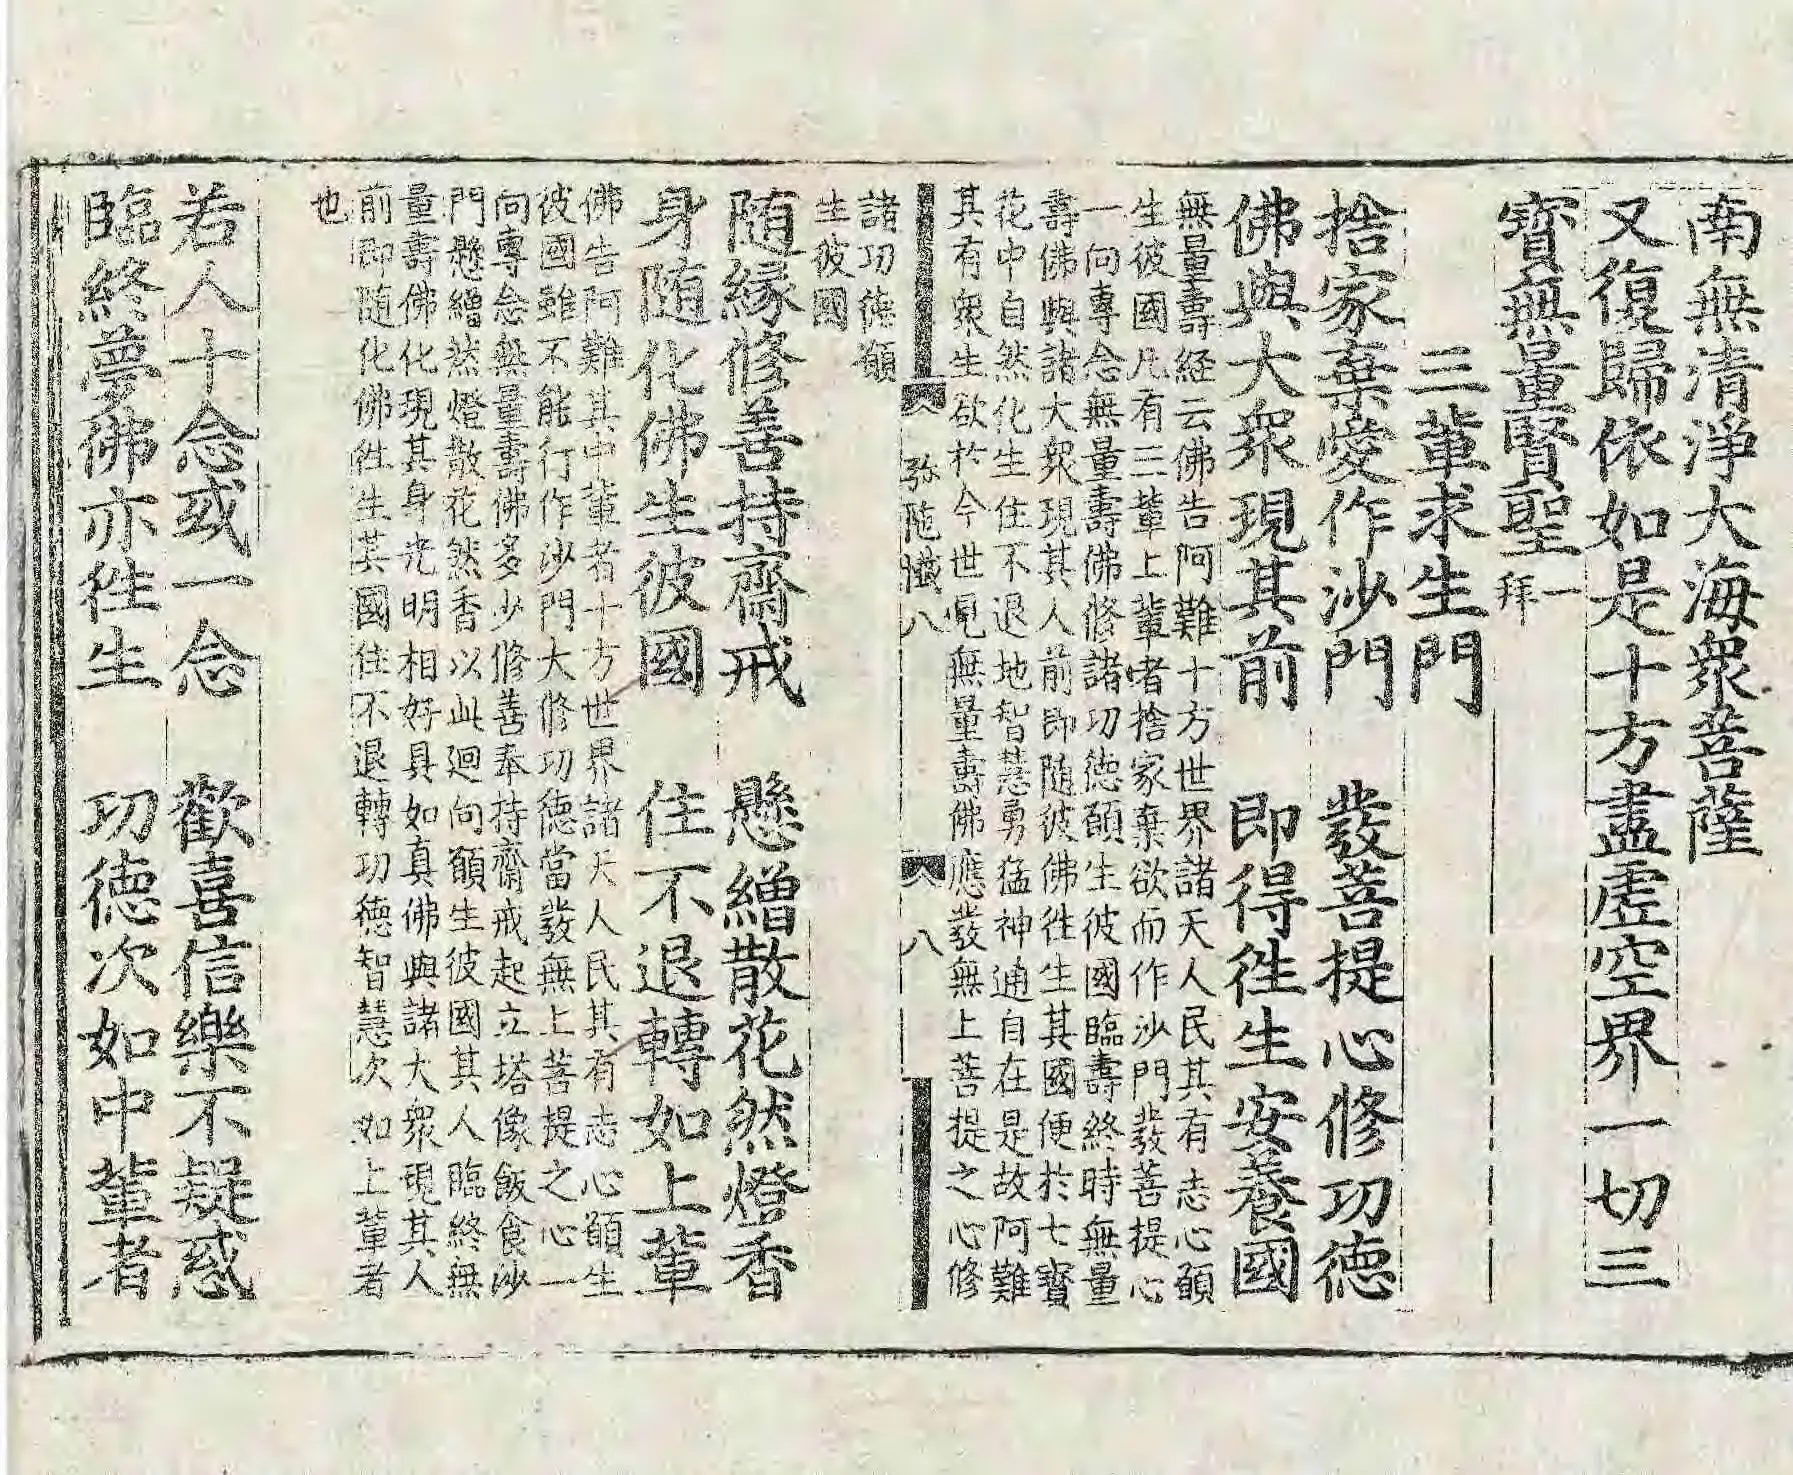 南無清淨大海衆菩薩
又復歸依如是十方盡虛空界一切三
寶無量賢聖一拜
三輩求生門
捨家棄愛作沙門　發菩提心修功德
佛與大衆現其前　即得徃生安養國
無量壽経云佛告阿難十方世界諸天人民其有志心願
生彼國凡有三輩上輩者捨家棄欲而作沙門發菩提心
一向專念無量壽佛修諸功德願生彼國臨壽終時無量
壽佛與諸大衆現其人前即随彼佛徃生其國便於七寳
花中自然化生住不退地智慧勇猛神通自在是故阿難
其有衆生欲於今世見無量壽佛應發無上菩提之心修
弥陁懺八　八
諸功德願
生彼國
随縁修善持齋戒　懸繒散花然燈香
身随化佛生彼國　住不退轉如上輩
佛告阿難其中輩者十方世界諸天人民其有志心願生
彼國雖不能行作沙門大修功德當發無上菩提之心一
向專念無量壽佛多少修善奉持齋戒起立塔像飯食沙
門懸繒然燈散花然香以此廻向願生彼國其人臨終無
量壽佛化現其身光明相好具如真佛與諸大衆現其人
前即随化佛徃生其國住不退轉功德智慧次如上輩者
也
若人十念或一念　歡喜信樂不疑惑
臨終夢佛亦徃生　功德次如中輩者